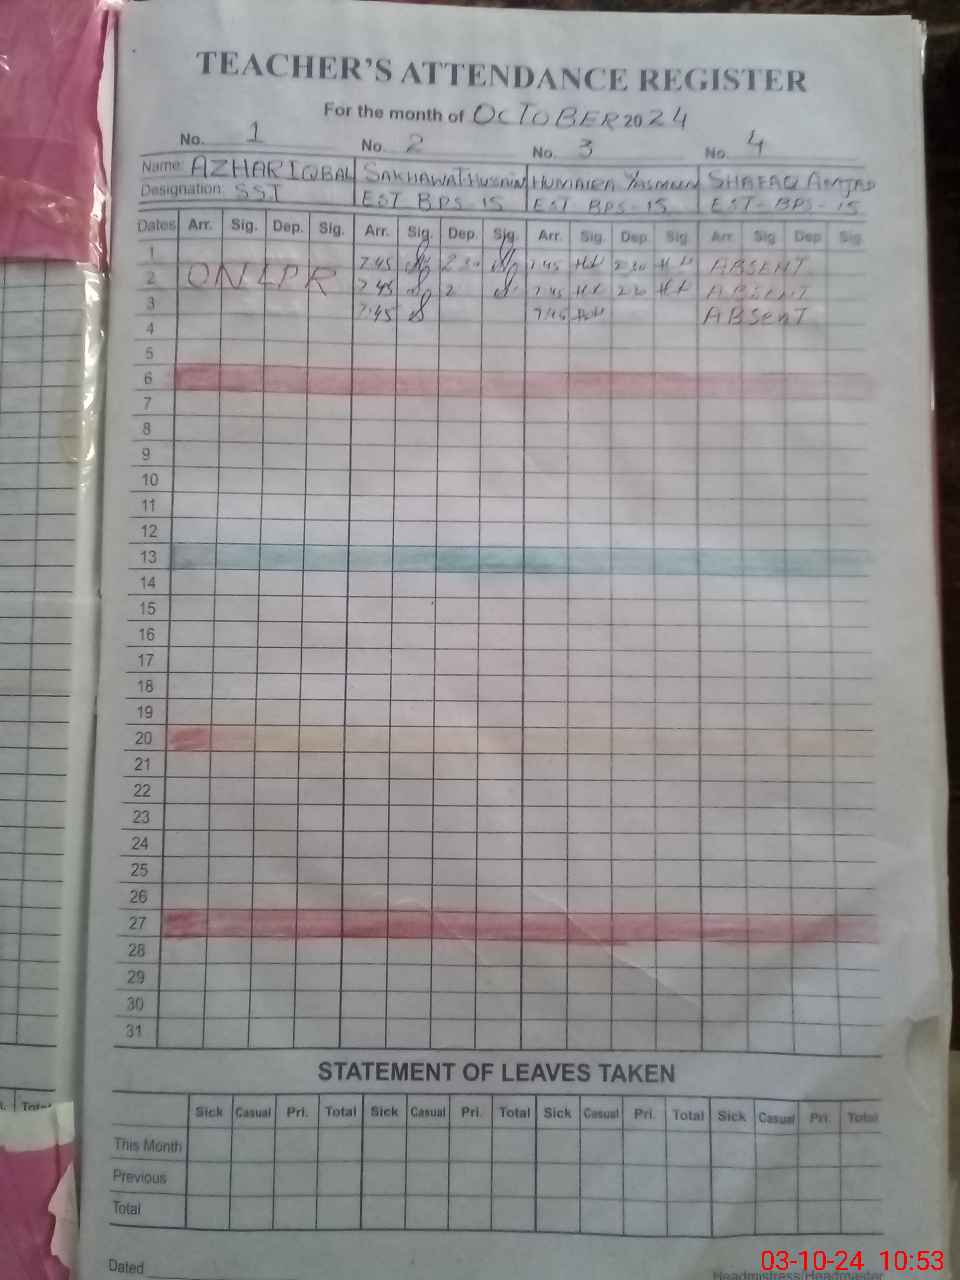 TEACHER'S ATTENDANCE REGISTER
For the month of OCTOBER 2024
No. 1 No. 2 No. 3 No. 4
Name: AZHAR IQBAL SAKHAWAT HUSSAIN HUMAIRA YASMEEN SHAFAQ AMJAD
Designation: SST EST BPS 15 EST BPS-15 EST-BPS-15
Dates Arr. Sig. Dep. Sig. Arr. Sig. Dep. Sig. Arr. Sig. Dep. Sig. Arr. Sig. Dep. Sig.
1 7.45 2 30 7.45 2 30 ABSENT
2 ON LPR 7.45 2 7.45 2 30 ABSENT
3 7.45 7.45 ABSENT
4
5
6
7
8
9
10
11
12
13
14
15
16
17
18
19
20
21
22
23
24
25
26
27
28
29
30
31
STATEMENT OF LEAVES TAKEN
Sick Casual Pri. Total Sick Casual Pri. Total Sick Casual Pri. Total Sick Casual Pri. Total
This Month
Previous
Total
Dated
Headmistress/Headmaster
03-10-24 10:53